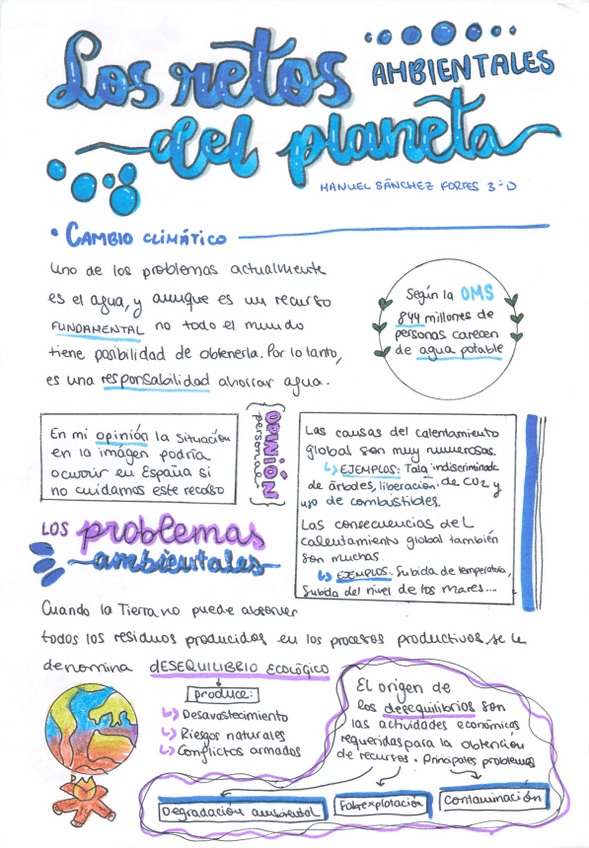 Los retos
AMBIENTALES
del planeta
MANUEL SÁNCHEZ FORTES 3ºD
• CAMBIO CLIMÁTICO
Uno de los problemas actualmente
es el agua, y aunque es un recurso
FUNDAMENTAL no todo el mundo
tiene posibilidad de obtenerla. Por lo tanto,
es una responsabilidad ahorrar agua.
Según la OMS
844 millones de
personas carecen
de agua potable
En mi opinión la situación
en la imágen podría
ocurrir en España si
no cuidamos este recurso
OPINIÓN
personal
Las causas del calentamiento
global son muy numerosas.
↳ EJEMPLOS: Tala indiscriminada
de árboles, liberación de CO2 y
uso de combustibles.
Las consecuencias del
calentamiento global también
son muchas.
↳ EJEMPLOS: Subida de temperatura,
Subida del nivel de los mares...
LOS problemas
ambientales
Cuando la Tierra no puede absorver
todos los residuos producidos en los procesos productivos, se le
denomina DESEQUILIBRIO ECOLÓGICO
produce:
↳ Desavastecimiento
↳ Riesgos naturales
↳ Conflictos armados
El origen de
los desequilibrios son
las actividades económicas
requeridas para la obtención
de recursos. Principales problemas
Degradación ambiental
Sobrexplotación
Contaminación